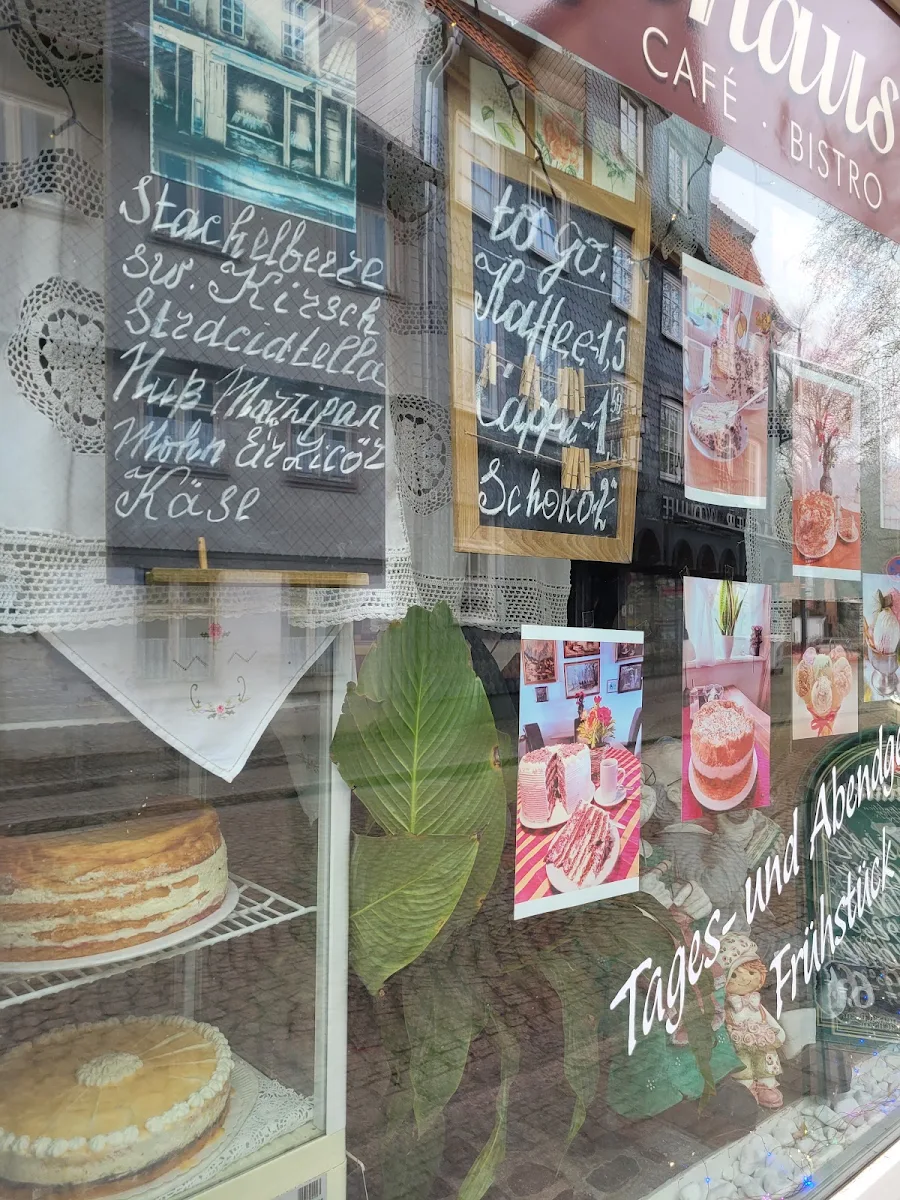 haus
CAFÉ · BISTRO
Stachelberre
sw. Kirsch
Straciatella
Nuß Marzipan
Mohn Eirlicör
Käse
to go.
Kaffee-1,5
Cappu-1,50
Schoko 2
Tages- und Abendge
Frühstück